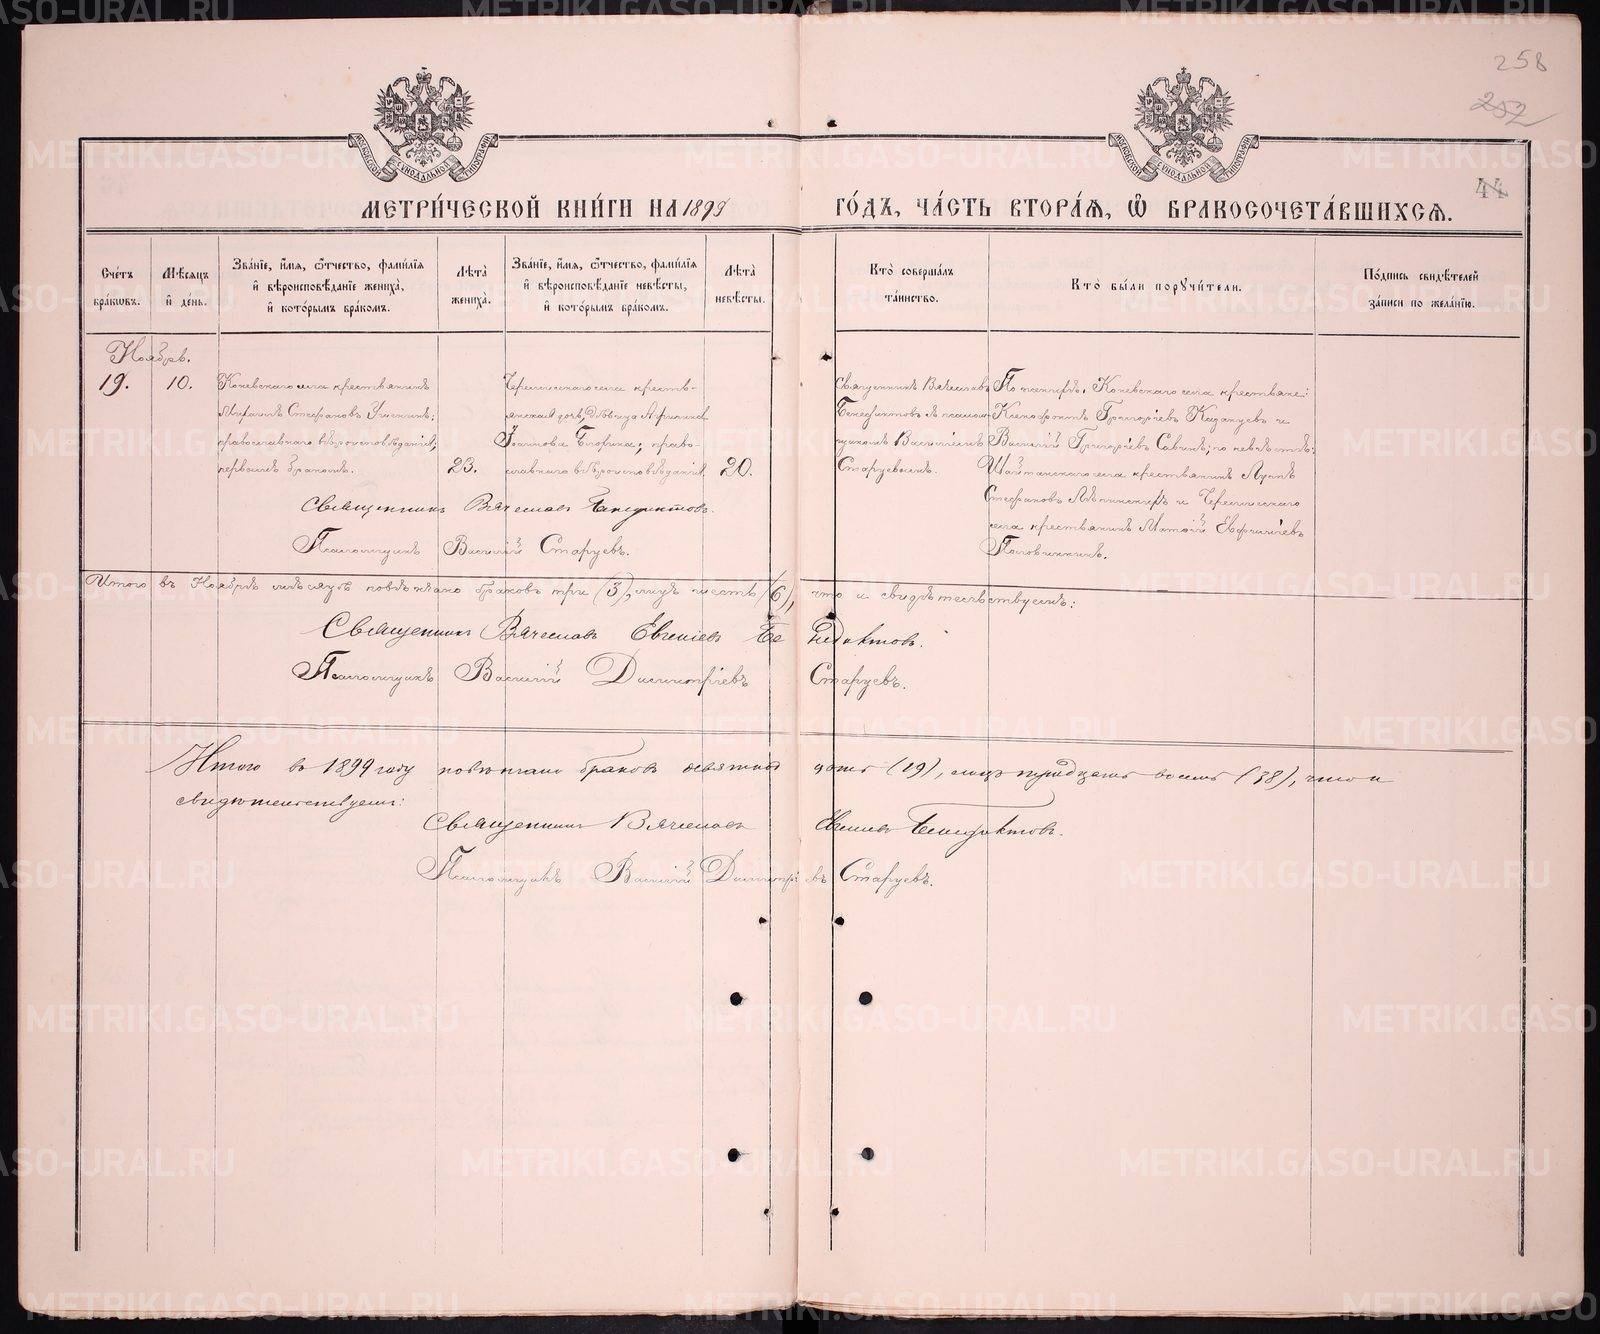 258
257
44
МЕТРИ́ЧЕСКОЙ КНИ́ГИ НА 1899 ГО́ДЪ, ЧА́СТЬ ВТОРА́Я, Ѡ БРАКОСОЧЕТА́ВШИХСЯ.
Сче́тъ бра́ковъ.
Мѣ́сяцъ и де́нь.
Зва́нїе, и́мя, ѻ҆́тчество, фами́лїя и҆ вѣроисповѣ́данїе жениха̀, и҆ кото́рымъ бра́комъ.
Лѣта̀ жениха̀.
Зва́нїе, и҆́мя, ѻ҆́тчество, фами́лїя и҆ вѣроисповѣ́данїе невѣ́сты, и҆ кото́рымъ бра́комъ.
Лѣта̀ невѣ́сты.
Кто̀ соверша́лъ та́инство.
Кто̀ бы́ли порꙋчи́тели.
По́дпись свидѣ́телей за́писи по жела́нїю.
Ноябрь.
19.
10.
Коневскаго села крестьянинъ
Михаилъ Стефановъ
православнаго вѣроисповѣданія;
первымъ бракомъ.
23.
села кресть-
янская дочь, дѣвица
Іоаннова право-
славнаго вѣроисповѣданія,
20.
Священникъ Вячеславъ
Бенедиктовъ съ псалом-
щикомъ Василіемъ
Старцевымъ.
По женихѣ: Коневскаго села крестьяне:
Ксенофонтъ Григорьевъ и
Василій Григорьевъ по невѣстѣ:
Шайтанскаго села крестьянинъ
Стефановъ и
села крестьянинъ
Половинкинъ.
Священникъ Вячеслав Бенедиктовъ.
Псаломщикъ Василій Старцевъ.
Итого въ Ноябрѣ мѣсяцѣ повѣнчано браковъ три (3), лицъ шесть (6), что и свидѣтельствуемъ:
Священник Вячеслав Евгеніев Бенедиктов.
Псаломщикъ Василій Димитріевъ Старцевъ.
Итого въ 1899 году повѣнчано браков девятнадцать (19), лицъ тридцать восемь (38), что и
свидѣтельствуемъ:
Священник Вячеслав Евгеніев Бенедиктов.
Псаломщикъ Василій Димитріевъ Старцевъ.
METRIKI.GASO-URAL.RU